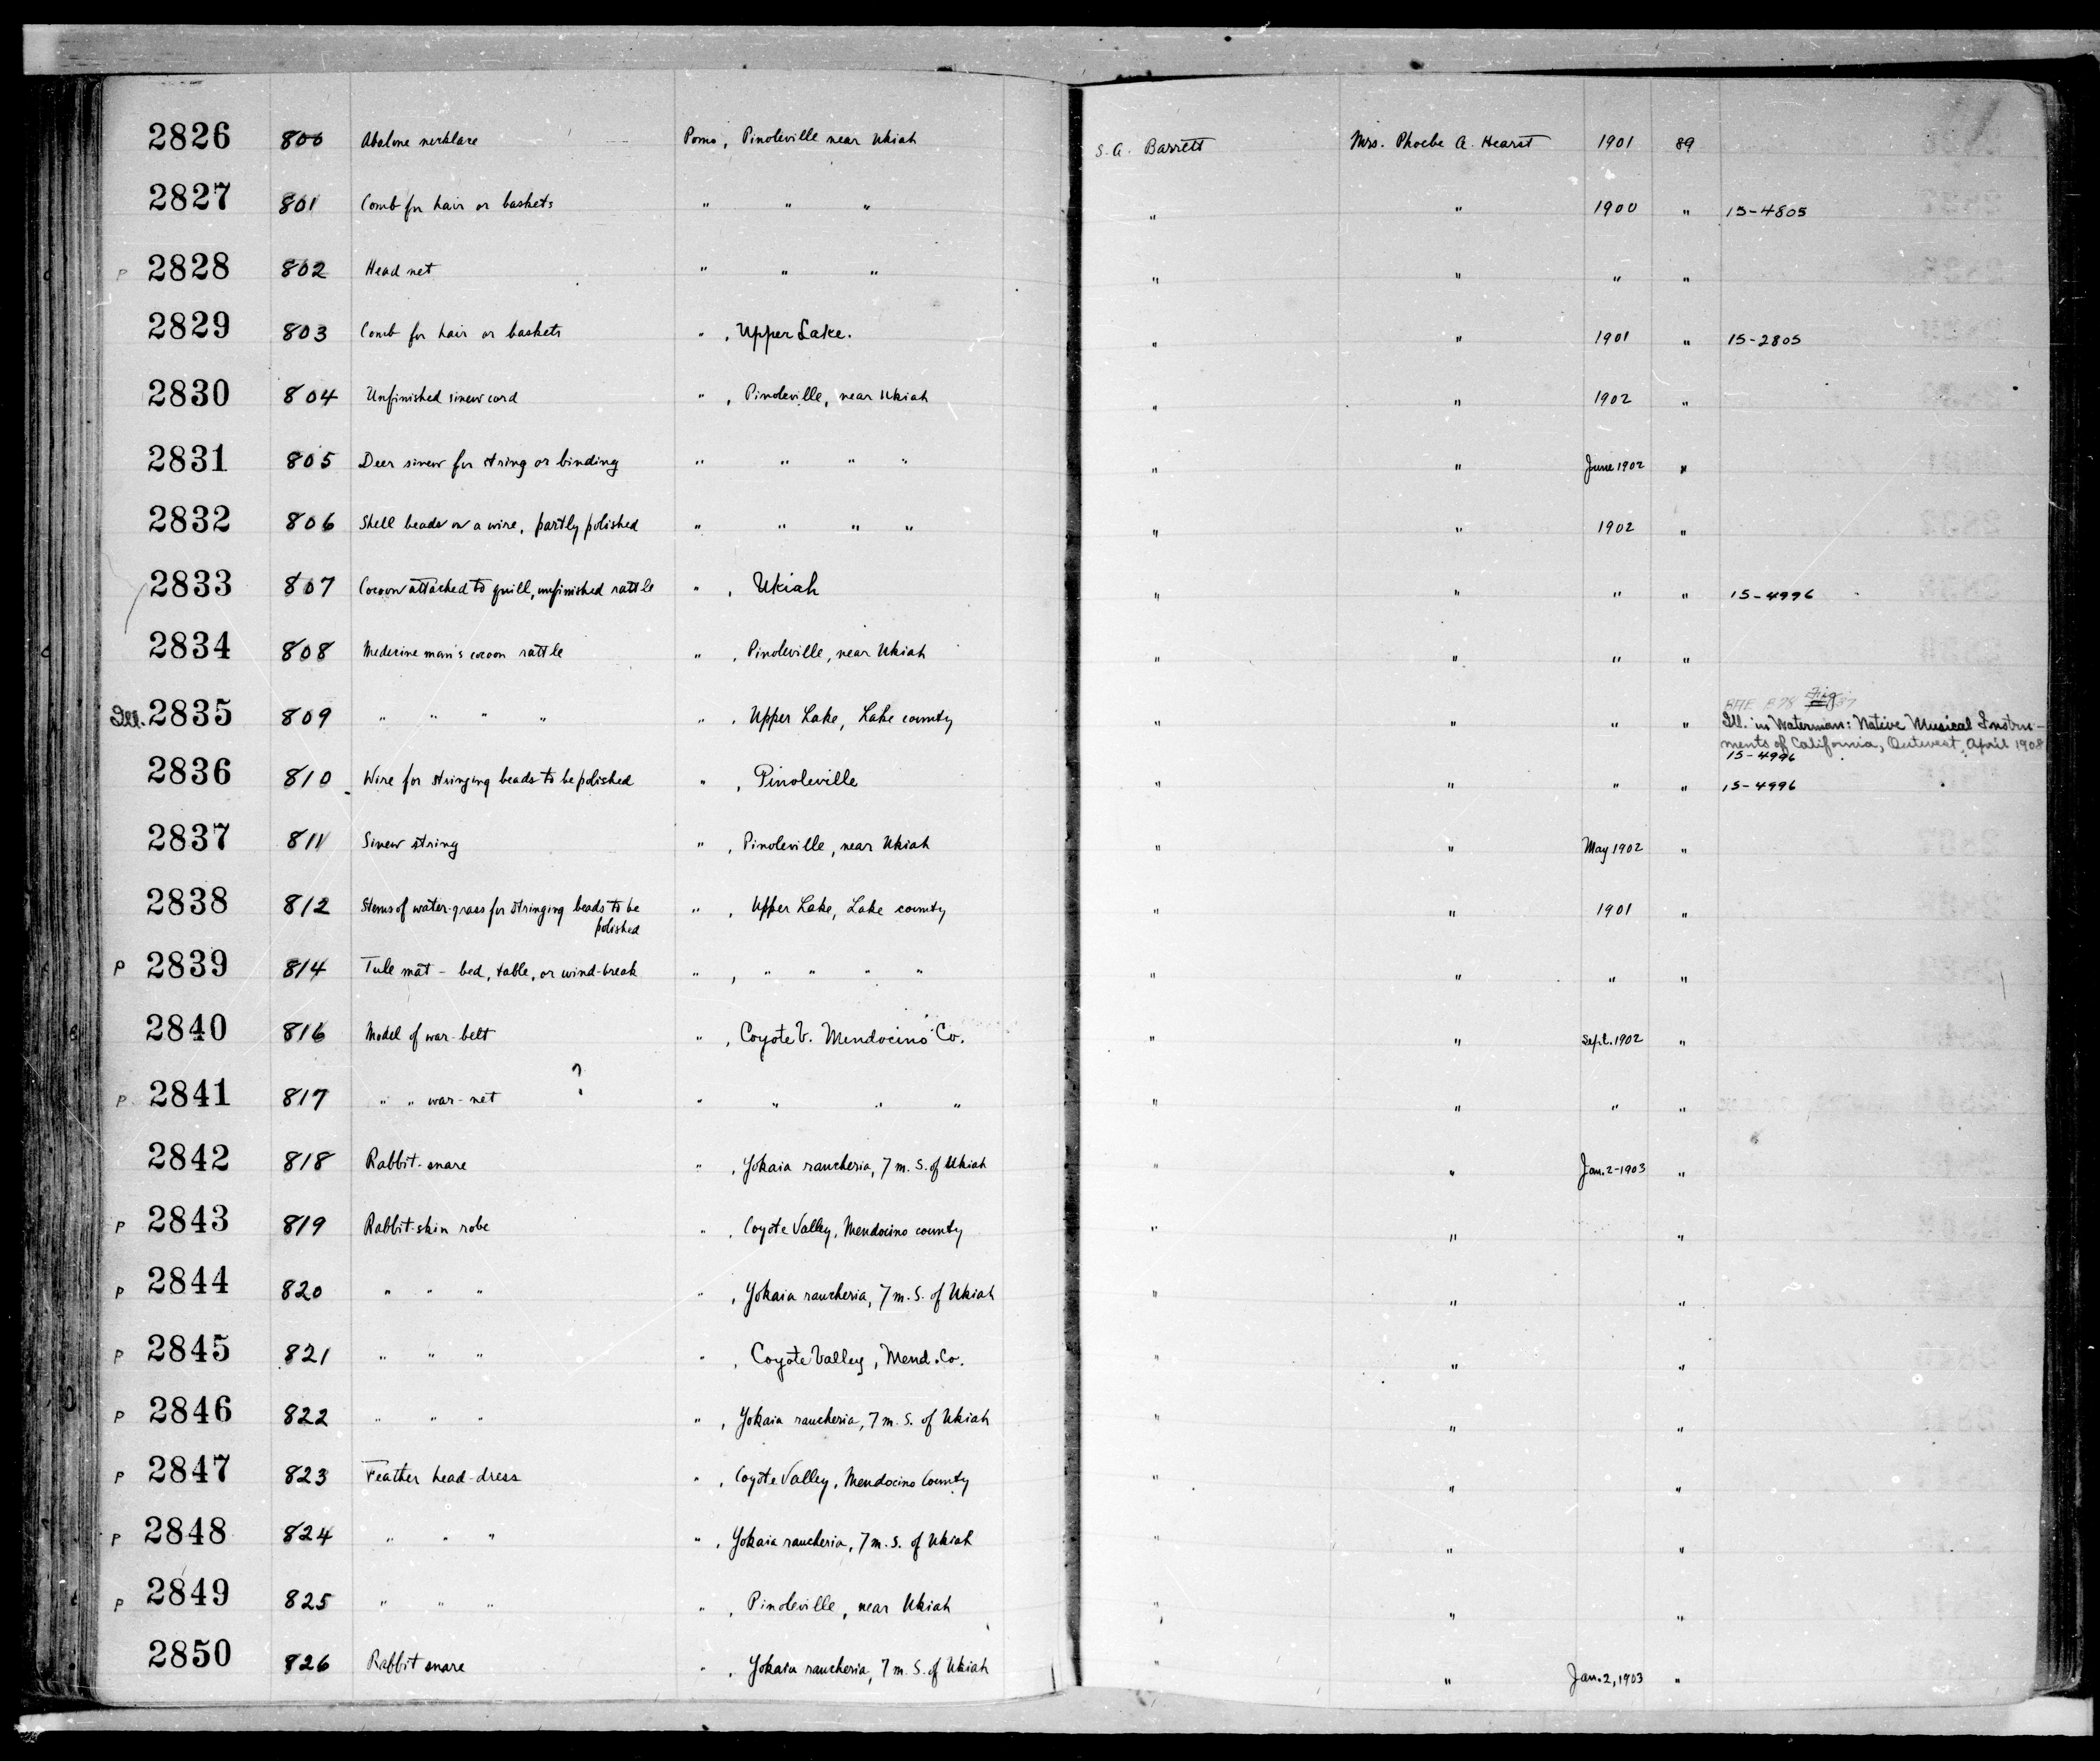 2826 800 Abalone necklace Pomo, Pinoleville near Ukiah S. A. Barrett Mrs. Phoebe A. Hearst 1901 89
2827 801 Comb for hair or baskets " " " " " 1900 " 15-4805
P 2828 802 Head net " " " " " " "
2829 803 Comb for hair or baskets " , Upper Lake. " " 1901 " 15-2805
2830 804 Unfinished sinew cord " , Pinoleville, near Ukiah " " 1902 "
2831 805 Deer sinew for string or binding " " " " " " June 1902 "
2832 806 Shell beads on a wire, partly polished " " " " " " 1902 "
2833 807 Cocoon attached to quill, unfinished rattle " , Ukiah " " " " 15-4996
2834 808 Medecine man's cocoon rattle " , Pinoleville, near Ukiah " " " "
Ill. 2835 809 " " " " " , Upper Lake, Lake county " " " " BAE B 78 Fig.
Ill. in Waterman: Native Musical Instru-
ments of California, Outwest, April 1908
15-4996
2836 810 Wire for stringing beads to be polished " , Pinoleville " " " " 15-4996
2837 811 Sinew string " , Pinoleville, near Ukiah " " May 1902 "
2838 812 Stems of water-grass for stringing beads to be " , Upper Lake, Lake county " " 1901 "
polished
P 2839 814 Tule mat - bed, table, or wind-break " , " " " " " " " "
2840 816 Model of war-belt " , Coyote V. Mendocino Co. " " Sept. 1902 "
P 2841 817 " " war-net ? " " " " " " " "
2842 818 Rabbit-snare " , Yokaia rancheria, 7 m. S. of Ukiah " " Jan. 2-1903 "
P 2843 819 Rabbit-skin robe " , Coyote Valley, Mendocino county " " "
P 2844 820 " " " " , Yokaia rancheria, 7 m. S. of Ukiah " " "
P 2845 821 " " " " , Coyote Valley, Mend. Co. " " "
P 2846 822 " " " " , Yokaia rancheria, 7 m. S. of Ukiah " " "
P 2847 823 Feather head-dress " , Coyote Valley, Mendocino County " " "
P 2848 824 " " " " , Yokaia rancheria, 7 m. S. of Ukiah " " "
P 2849 825 " " " " , Pinoleville, near Ukiah " " "
2850 826 Rabbit snare " , Yokaia rancheria, 7 m. S. of Ukiah " " Jan. 2, 1903 "